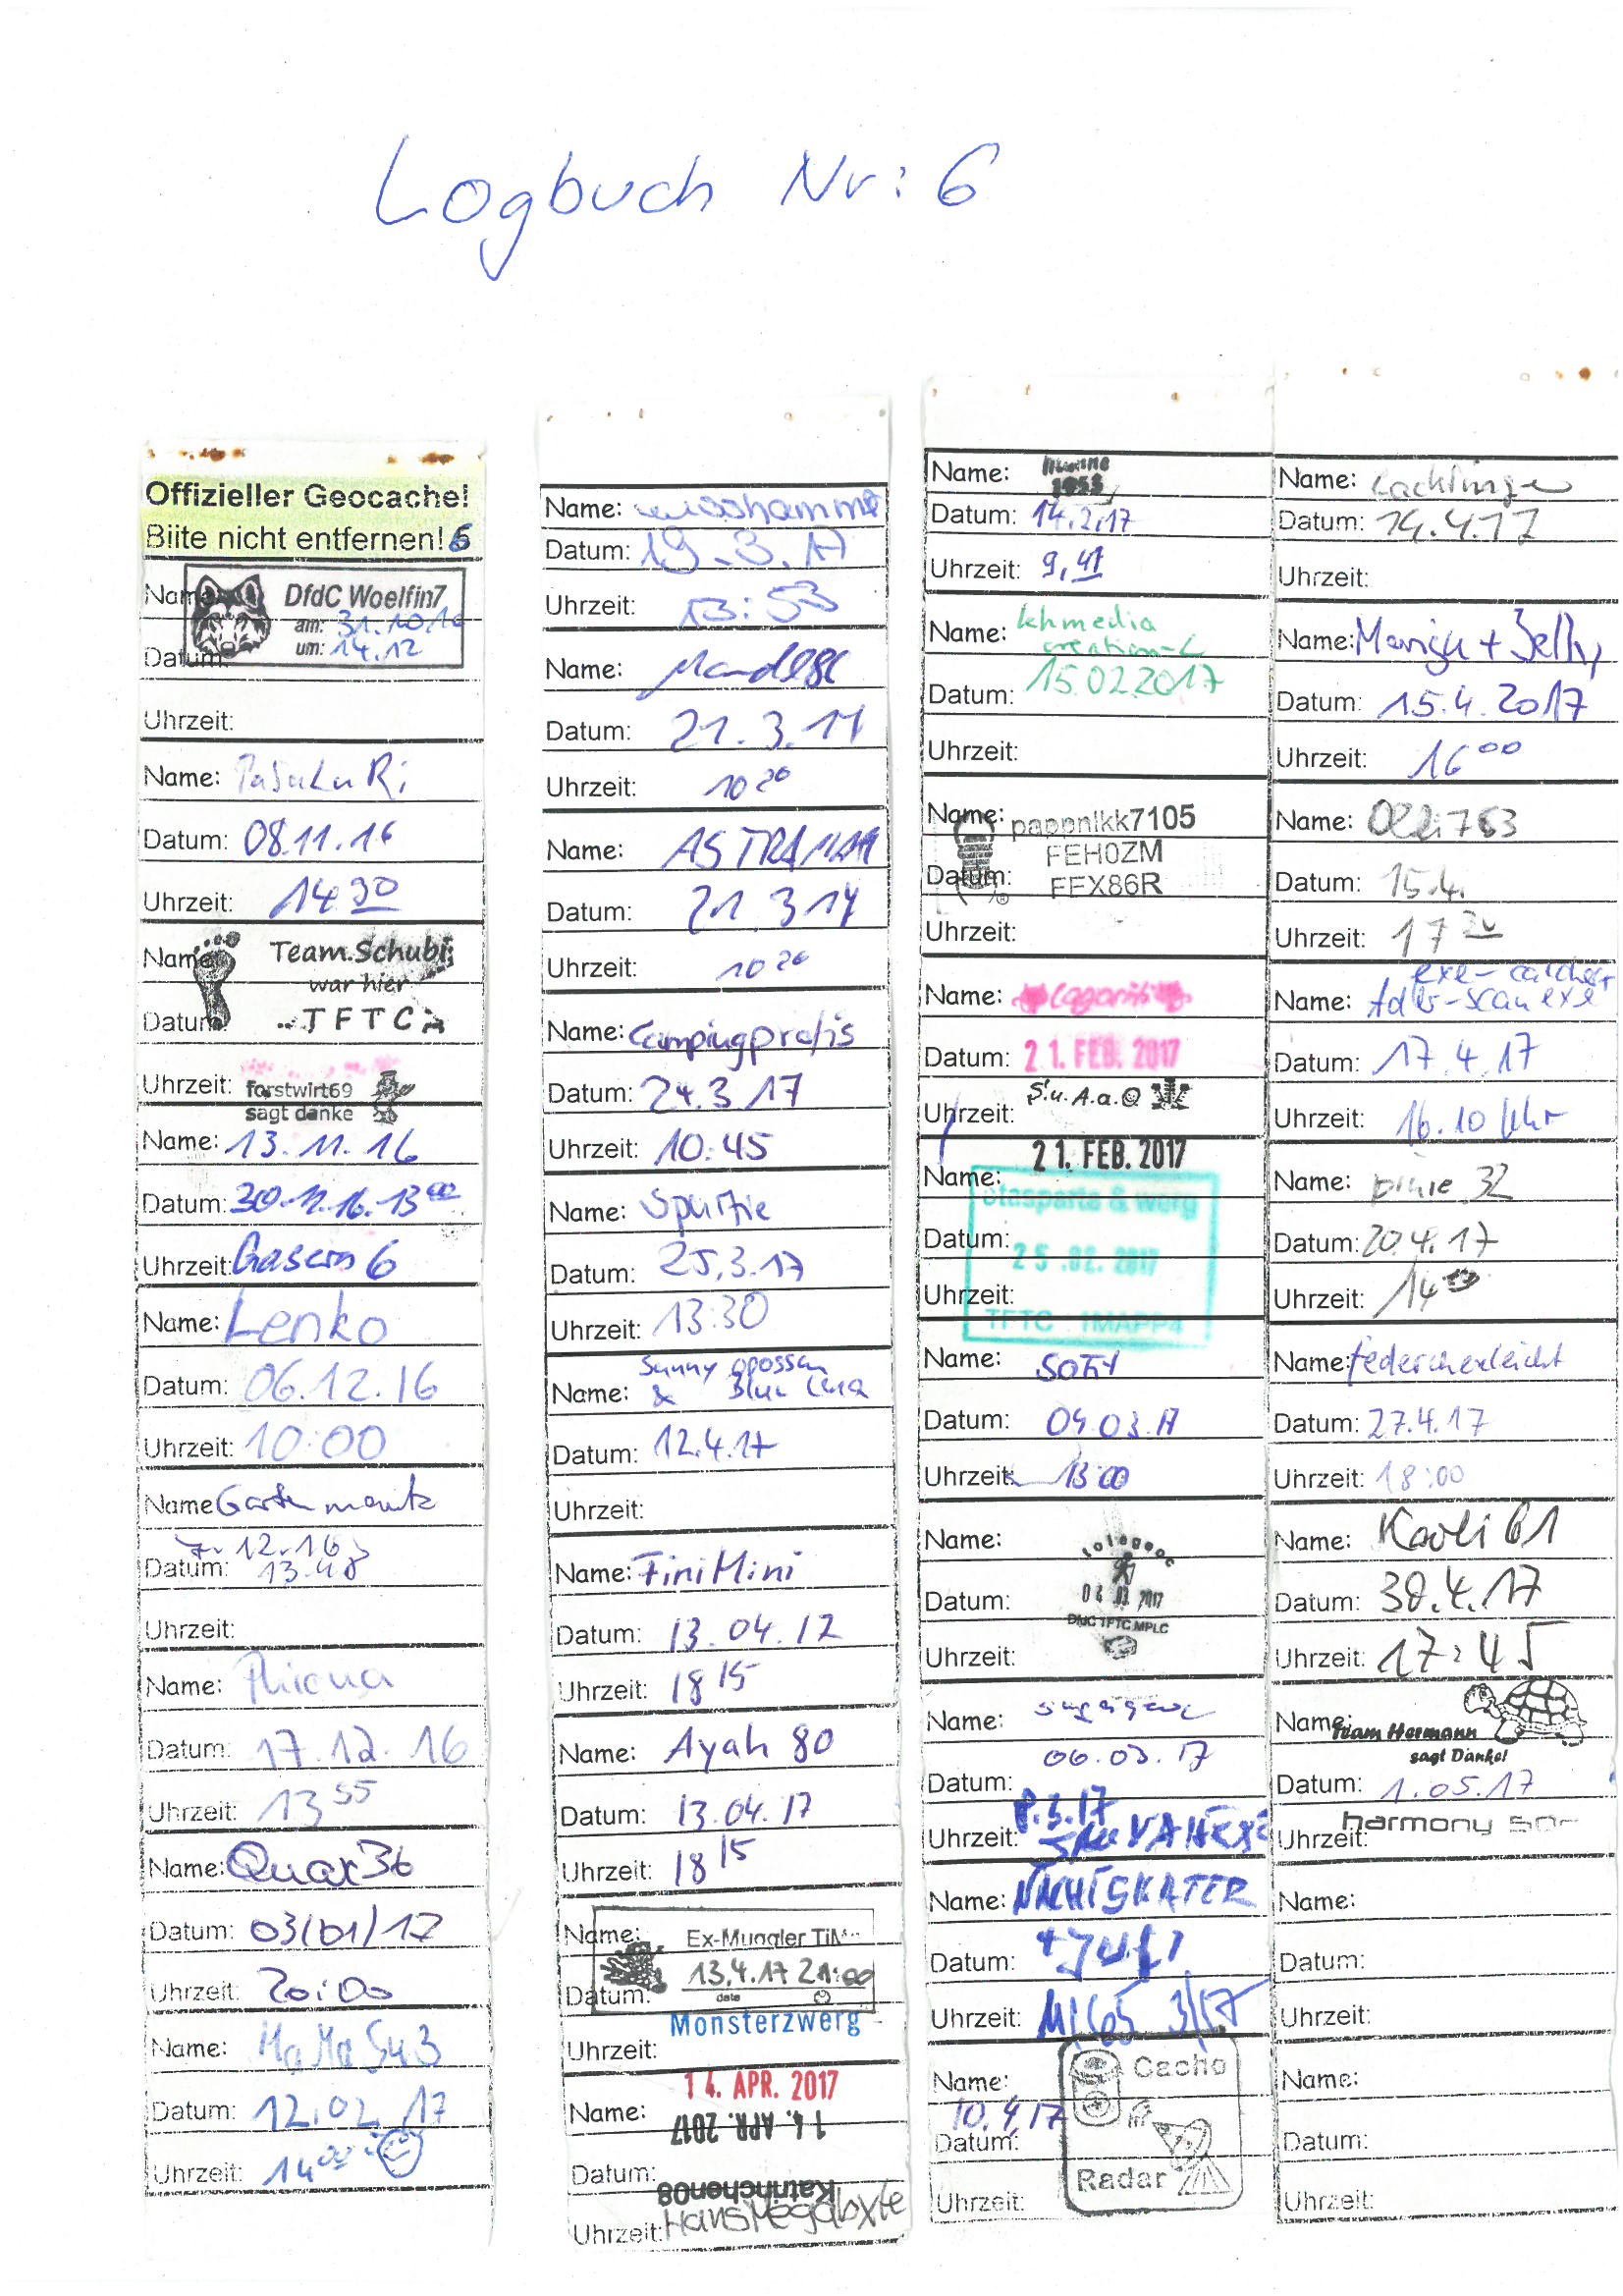 Logbuch Nr: 6
Offizieller Geocache!
Biite nicht entfernen! 6
Name
DfdC Woelfin7
am: 31.10.16
um: 14.12
Datum:
Uhrzeit:
Name: PaSuLuRi
Datum: 08.11.16
Uhrzeit: 14 30
Name
Team.Schubi
war hier
Datum: ..TFTC..
Uhrzeit: forstwirt69
sagt danke
Name: 13.11.16
Datum: 30.11.16.13 00
Uhrzeit: 6
Name: Lenko
Datum: 06.12.16
Uhrzeit: 10:00
Name
7.12.16
Datum: 13.48
Uhrzeit:
Name:
Datum: 17.12.16
Uhrzeit: 13 55
Name: Quax36
Datum: 03/01/17
Uhrzeit: 20:00
Name: MaMaSu3
Datum: 12.02.17
Uhrzeit: 14 00
Name:
Datum: 19.3.17
Uhrzeit: 13:53
Name:
Datum: 21.3.17
Uhrzeit: 10 20
Name:
Datum: 21.3.17
Uhrzeit: 10 20
Name: Campingprofis
Datum: 24.3.17
Uhrzeit: 10:45
Name:
Datum: 25.3.17
Uhrzeit: 13:30
Sunny opossum
Name: & Blue
Datum: 12.4.17
Uhrzeit:
Name: FiniMini
Datum: 13.04.17
Uhrzeit: 18 15
Name: Ayah 80
Datum: 13.04.17
Uhrzeit: 18 15
Name: Ex-Muggler TiM
13.4.17 21:00
Datum: date
Monsterzwerg
Uhrzeit:
14. APR. 2017
Name:
14. APR. 2017
Datum:
Katrinchen08
Uhrzeit: HansMegabyte
Name: 1955
Datum: 14.2.17
Uhrzeit: 9,41
Name: khmedia
creation-L
Datum: 15.02.2017
Uhrzeit:
Name: papenikk7105
FEH0ZM
Datum: FFX86R
Uhrzeit:
Name:
Datum: 21. FEB. 2017
Uhrzeit: S.u.A.a.O
21. FEB. 2017
Name:
Datum: 25.02.2017
Uhrzeit:
TFTC
Name:
Datum: 04.03.17
Uhrzeit: 13 00
Name:
Datum: 04.03.2017
DNC TFTC MPLC
Uhrzeit:
Name:
06.03.17
Datum:
8.3.17
Uhrzeit:
Name: NACHTSKATER
Datum:
Uhrzeit: 3/17
Name: Cache
10.4.17
Datum:
Radar
Uhrzeit:
Name:
Datum: 14.4.17
Uhrzeit:
Name: + Jelly
Datum: 15.4.2017
Uhrzeit: 16 00
Name: Olli763
Datum: 15.4.
Uhrzeit: 17 20
exe-catcher
Name: Adler-scan exe
Datum: 17.4.17
Uhrzeit: 16.10 Uhr
Name: pixie 32
Datum: 20.4.17
Uhrzeit: 14
Name: federchenleicht
Datum: 27.4.17
Uhrzeit: 18:00
Name: Karli 61
Datum: 30.4.17
Uhrzeit: 17:45
Name: Team Hermann
sagt Danke!
Datum: 1.05.17
harmony
Uhrzeit:
Name:
Datum:
Uhrzeit:
Name:
Datum:
Uhrzeit: